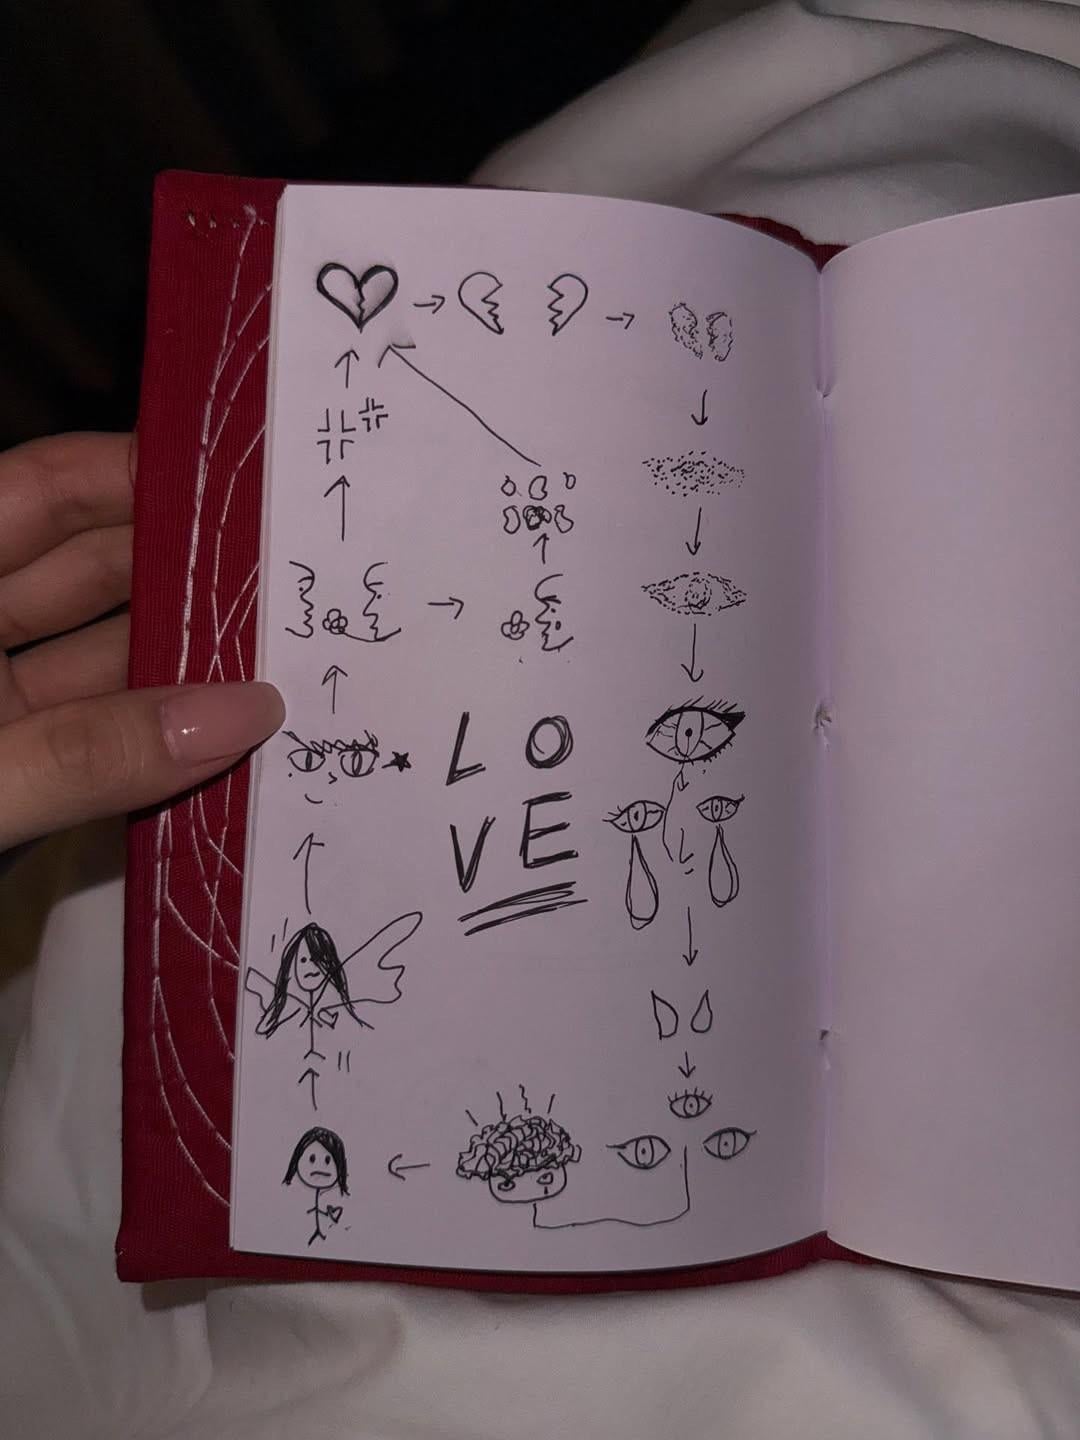 L O
V E